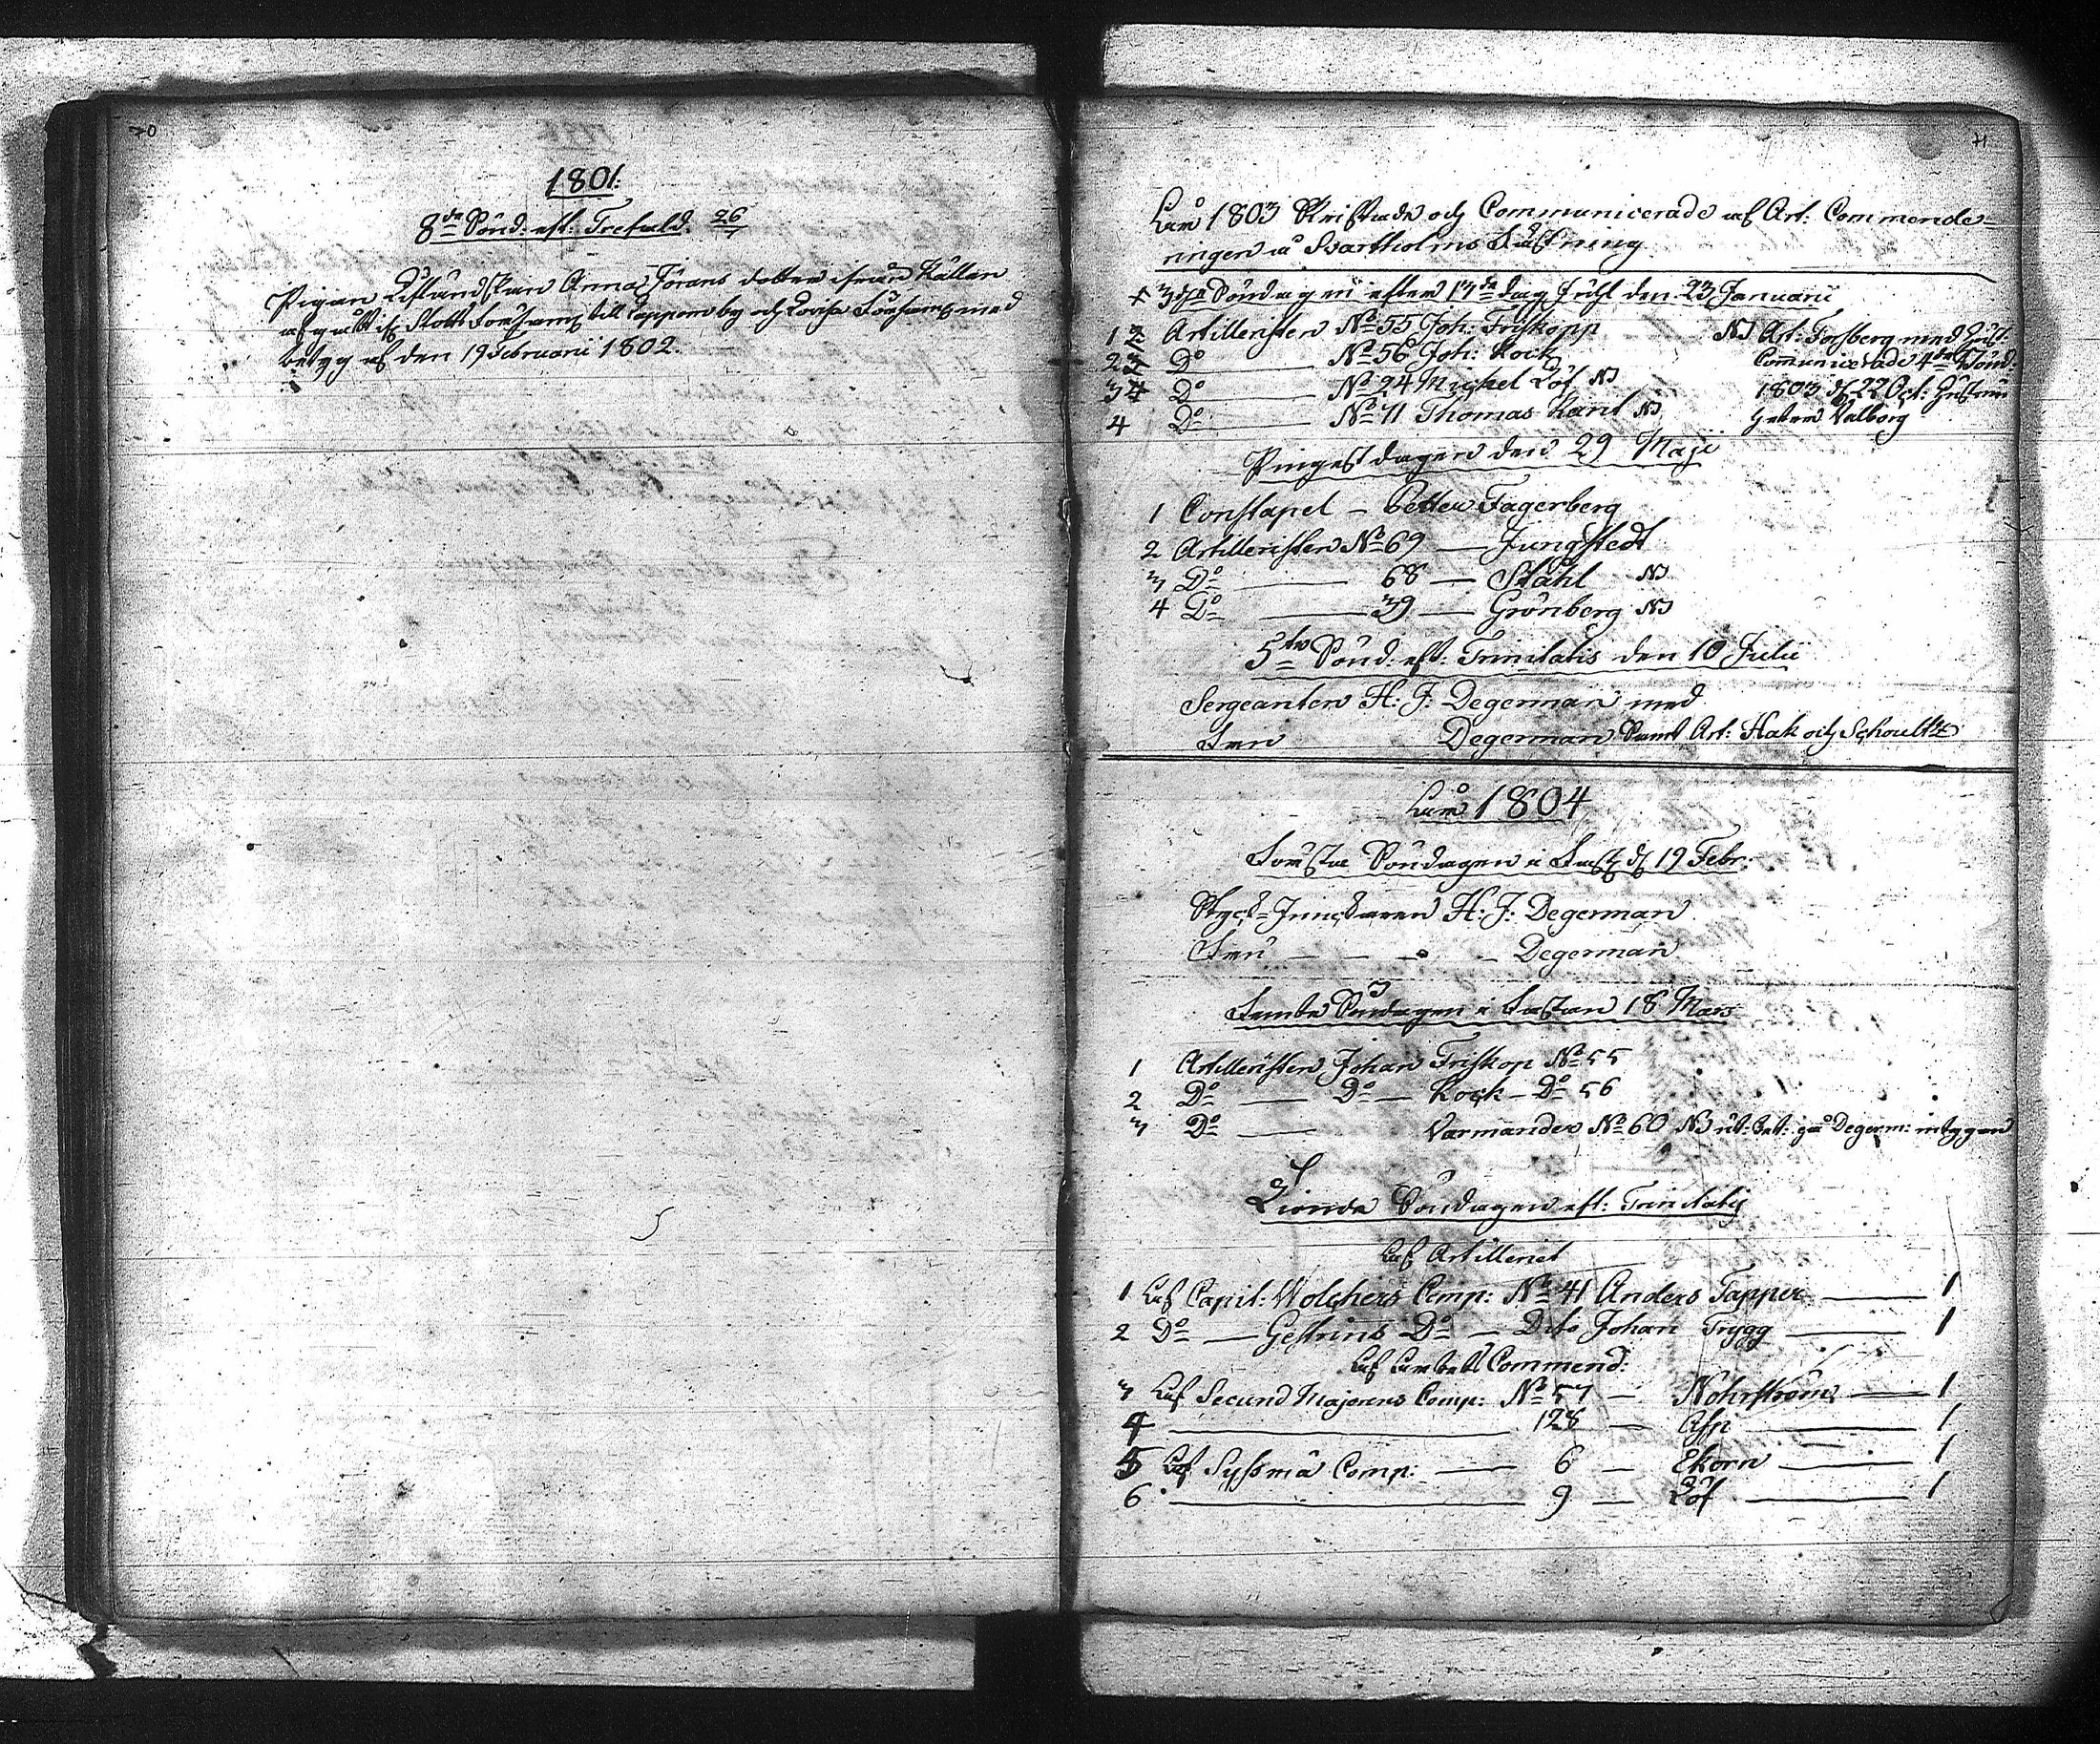 70
1801:
8de Sönd: eft: Trefald. 26/7
Pigan Lifländskan Anna Jörans dotter ifrån Källan
afgått if Slotts Församl. till Lappom by och Lovisa Församl. med
betyg af den 19 Februarii 1802.
71
Åhr 1803 Skriftade och Communicerade af Art: Commende-
ringen å Svartholms Fästning
3dje Söndagen efter 13de dag Juhl den 23 Januarii
1 Artilleristen No 55 Joh: Friskopp
2 Do No 56 Joh: Kock
3 Do No 24 Mickel Löf NB
4 Do No 71 Thomas Rant NB
NB Art: Forsberg med Hust:
Communicerade 4de Sönd
1803 d 22 Oct: Hustrun
heter Valborg
Pingest dagen den 29 Maji
1 Constapel – Petter Fagerberg
2 Artilleristen No 69 — Jungstedt
3 Do — 68 — Ståhl NB
4 Do — 39 — Grönberg NB
5te Sönd: eft: Trinitatis den 10 Julii
Sergeanten H: J: Degerman med
Fru Degerman Samt Art: Hak och Schoultz
Åhr 1804
Första Söndagen i Fast: d 19 Febr:
Styck-Junckaren H: J: Degerman
Fru — — — Degerman
Femte Söndagen i Fastan 18 Mars
1 Artilleristen Johan Friskop No 55
2 Do — Do — Kock – Do 56
3 Do — Varmander No 60 NB ut: bet: på Degerm: intygan
Tionde Söndagen eft: Trinitatis
Af Artilleriet
1 Af Capit: Molchers Comp: No 41 Anders Tapper — 1
2 Do — Gestrins Do — Dito Johan Trygg — 1
Af Arbets Commend:
3 Af Secund Majorens Comp: No 57 — Nohrström — 1
4 — 128 — Asp — 1
5 Af Syssmä Comp: — 6 — Ekorn — 1
6 — 9 — Löf — 1